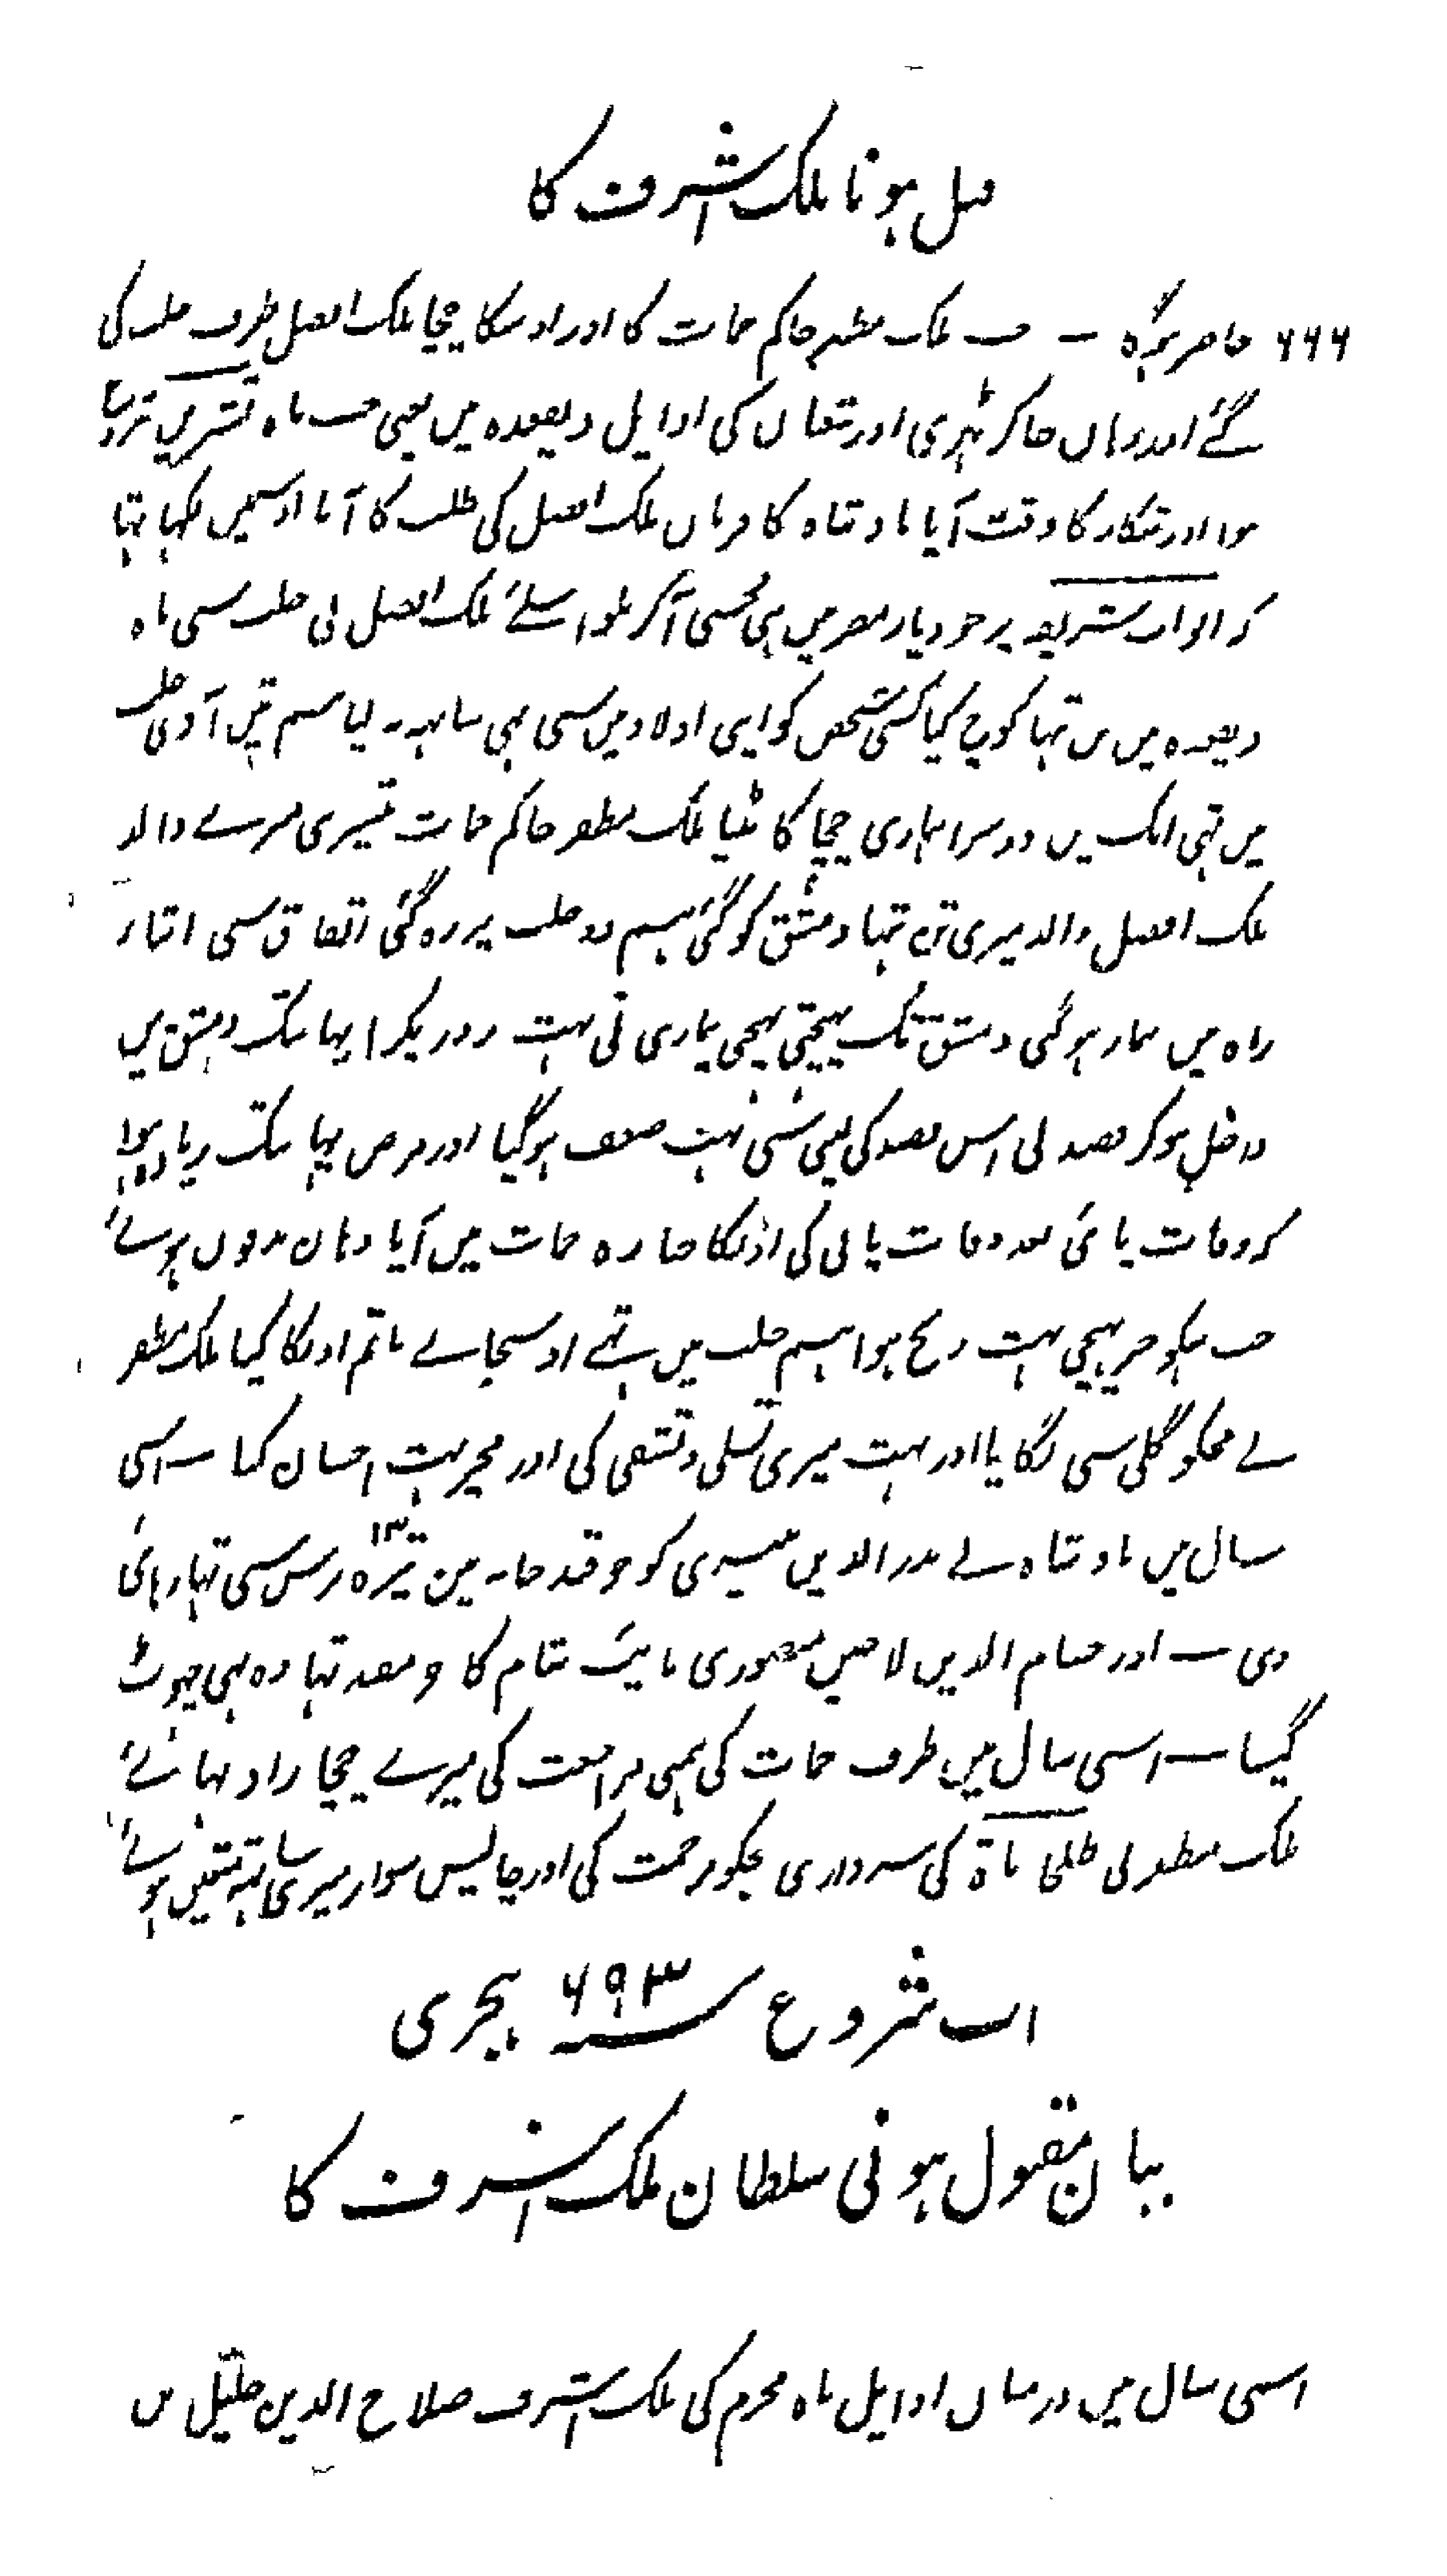 قتل ہونا ملک اشرف کا
۶۶۶ حاضر ہوگا – جب ملک مظفر حاکم حمات کا اور اوسکا چچا ملک افضل طرف حلب کی
گئے اور وہاں جاکر ٹہری اور شعبان کی اوایل ذیقعدہ میں یعنی جب ماہ تشرین شروع
ہوا اور شکار کا وقت آیا بادشاہ کا فرمان ملک افضل کی طلب کا آیا اوسمیں لکہا تہا
کہ ابواب شریفہ پر جو دیار مصر میں ہی مجسی آکر ملو اسلئے ملک افضل نی حلب سی ماہ
ذیقعدہ میں تن تنہا کوچ کیا کسی شخص کو اپنی اولاد میں سی بہی ساتہہ نہ لیا ہم تین آدمی حلب
میں تہی ایک میں دوسرا ہماری چچا کا بیٹیا ملک مظفر حاکم حمات تیسری میرے والد
ملک افضل والد میری تن تنہا دمشق کو گئی ہم دو حلب پر رہ گئی اتفاق سی اثنار
راہ میں بیمار ہوگئی دمشق تک پہنچتی پہنچی بیماری نی بہت زور پکڑا یہانتک دمشق میں
داخل ہوکر فصد لی اس فصد کی لینی سی بہت ضعف ہوگیا اور مرض یہانتک زیادہ ہوا
کہ وفات پائی بعد وفات پانی کی اونکا جنازہ حمات میں آیا وہاں مدفون ہوئے
جب ہمکو خبر پہنچی بہت رنج ہوا ہم حلب میں تہے اوسیجائے ماتم اونکا کیا ملک مظفر
نے مجکو گلی سی لگایا اور بہت میری تسلی و تشفی کی اور مجہر بہت احسان کیا – اسی
سال میں بادشاہ نے بدر الدین بیسری کو جو قید خانہ مین تیرہ ۱۳ برس سی تہا رہائی
دی – اور حسام الدین لاچین منصوری نایب شام کا و مقید تہا وہ بہی چہوٹ
گیا – اسی سال میں طرف حمات کی ہمنی مراجعت کی میرے چچا زاد بہائی
ملک مظفر نی طلبخاناۃ کی سرداری مجکو مرحمت کی اور چالیس سوار میری ساتہہ متعین ہوئے
اب شروع سنہ ۶۹۳ ہجری
بیان مقتول ہونی سلطان ملک اشرف کا
اسی سال میں درمیان اوایل ماہ محرم کی ملک اشرف صلاح الدین خلیل بن